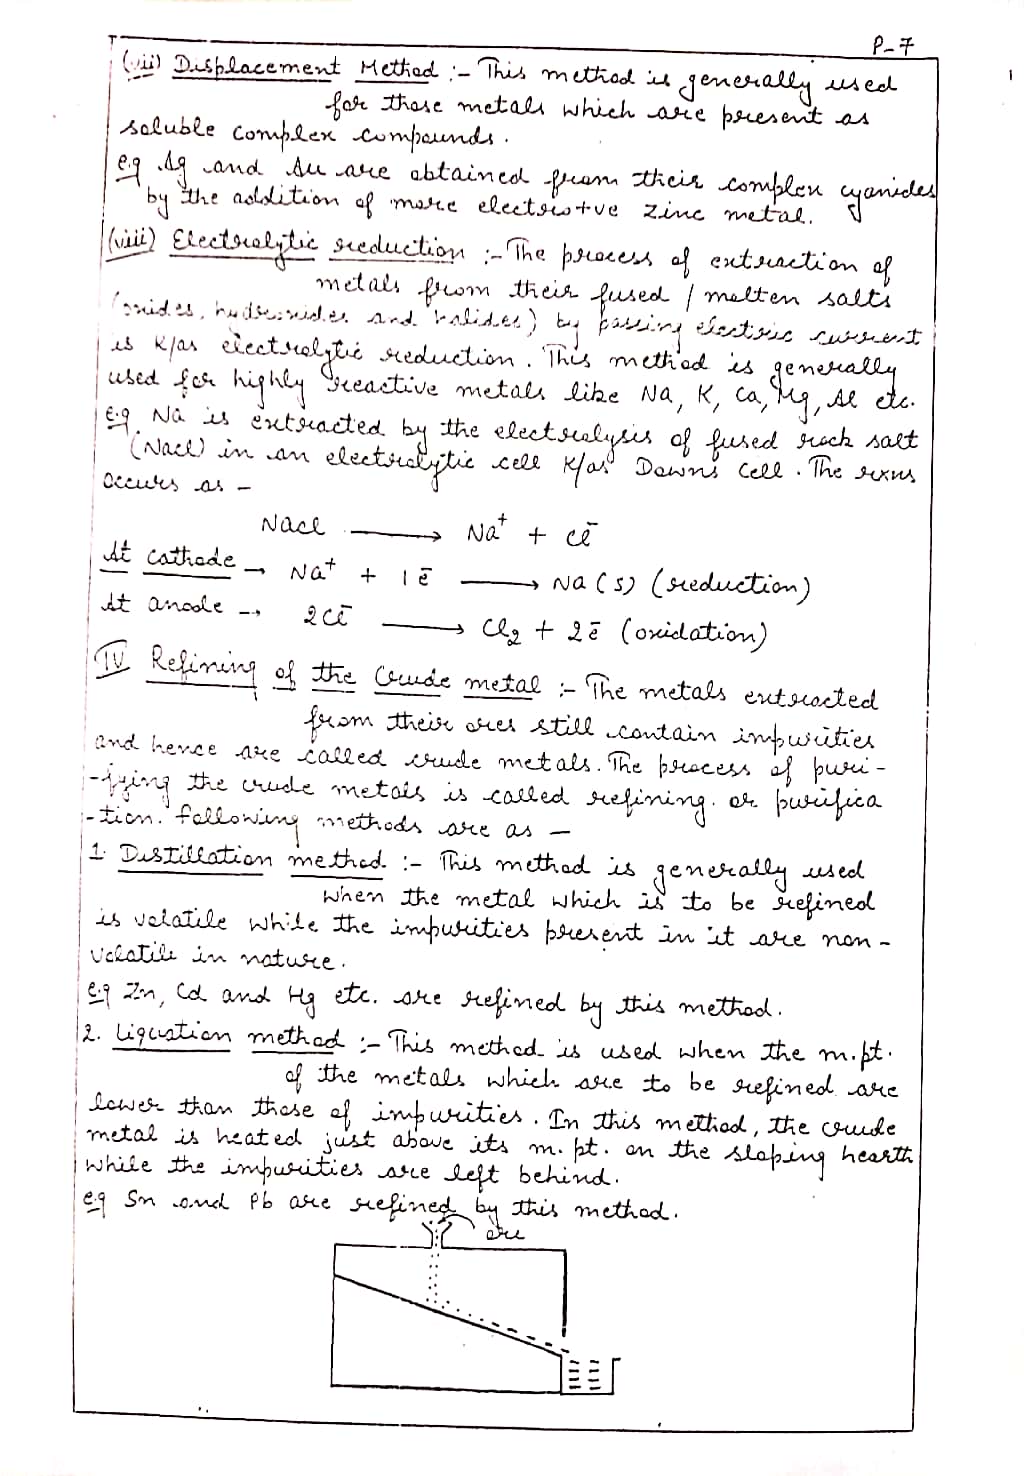 P-7
(vii) Displacement Method :- This method is generally used
for those metals which are present as
soluble complex compounds.
e.g Ag and Au are obtained from their complex cyanides
by the addition of more electro+ve zinc metal.
(viii) Electrolytic reduction :- The process of extraction of
metals from their fused / molten salts
(oxides, hydroxides and halides) by passing electric current
is K/as electrolytic reduction. This method is generally
used for highly reactive metals like Na, K, Ca, Mg, Al etc.
e.g Na is extracted by the electrolysis of fused rock salt
(Nacl) in an electrolytic cell K/as Down's cell. The rxns
occurs as -
Nacl ⟶ Na⁺ + Cl⁻
At cathode → Na⁺ + 1 e̅ ⟶ Na (s) (reduction)
At anode → 2Cl⁻ ⟶ Cl₂ + 2e̅ (oxidation)
IV Refining of the Crude metal :- The metals extracted
from their ores still contain impurities
and hence are called crude metals. The process of puri-
-fying the crude metals is called refining. or purifica
-tion. following methods are as -
1. Distillation method :- This method is generally used
when the metal which is to be refined
is volatile while the impurities present in it are non-
volatile in nature.
e.g Zn, Cd and Hg etc. are refined by this method.
2. Liquation method :- This method is used when the m.pt.
of the metals which are to be refined are
lower than those of impurities. In this method, the crude
metal is heated just above its m.pt. on the sloping hearth
while the impurities are left behind.
e.g Sn and Pb are refined by this method.
ore